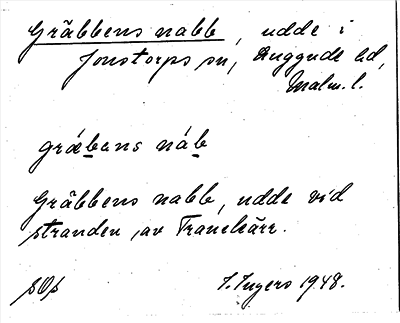 Gräbbens nabb, udde i
Jonstorps sn, Luggude hd,
Malm. l.
græbans náb
Gräbbens nabb, udde vid
stranden av Tranekärr.
I. Ingers 1948.